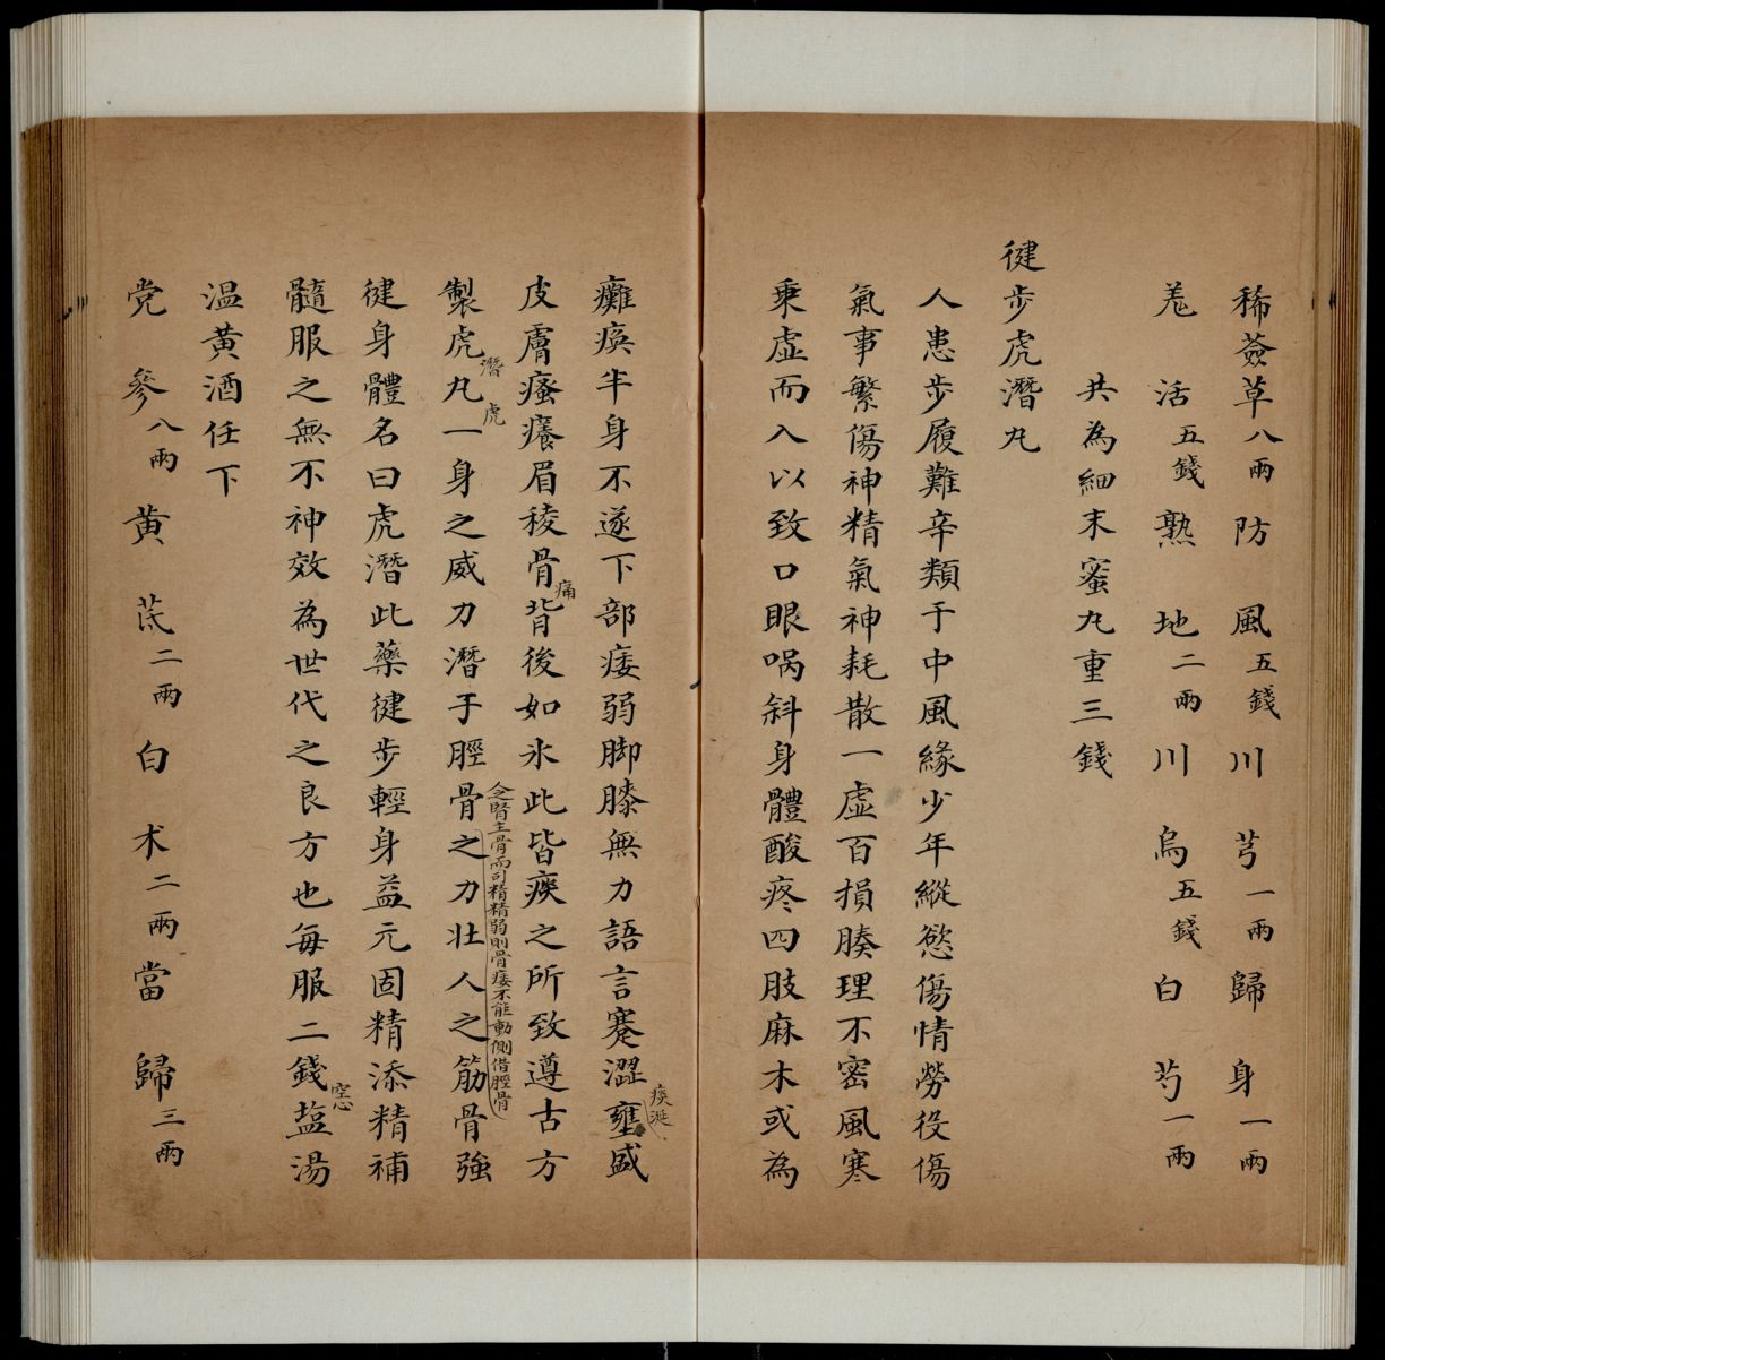 稀薟草八兩 防風五錢 川芎一兩 歸身一兩
羗活五錢 熟地二兩 川烏五錢 白芍一兩
共為細末蜜丸重三錢
徤步虎潛丸
人患步履難辛類于中風緣少年縱慾傷情勞役傷
氣事繁傷神精氣神耗散一虛百損腠理不密風寒
乘虛而入以致口眼喎斜身體酸疼四肢麻木或為
癱瘓半身不遂下部痿弱脚膝無力語言蹇澀壅盛
痰涎
皮膚瘙癢眉稜骨背後如氷此皆痰之所致遵古方
痛
製虎丸一身之威力潛于脛骨之力壯人之筋骨強
潛
虎
仝腎主骨而引精精弱則骨痿不能動側借脛骨
徤身體名曰虎潛此藥徤步輕身益元固精添精補
髓服之無不神效為世代之良方也每服二錢盐湯
空心
温黄酒任下
党參八兩 黄茋二兩 白术二兩 當歸三兩